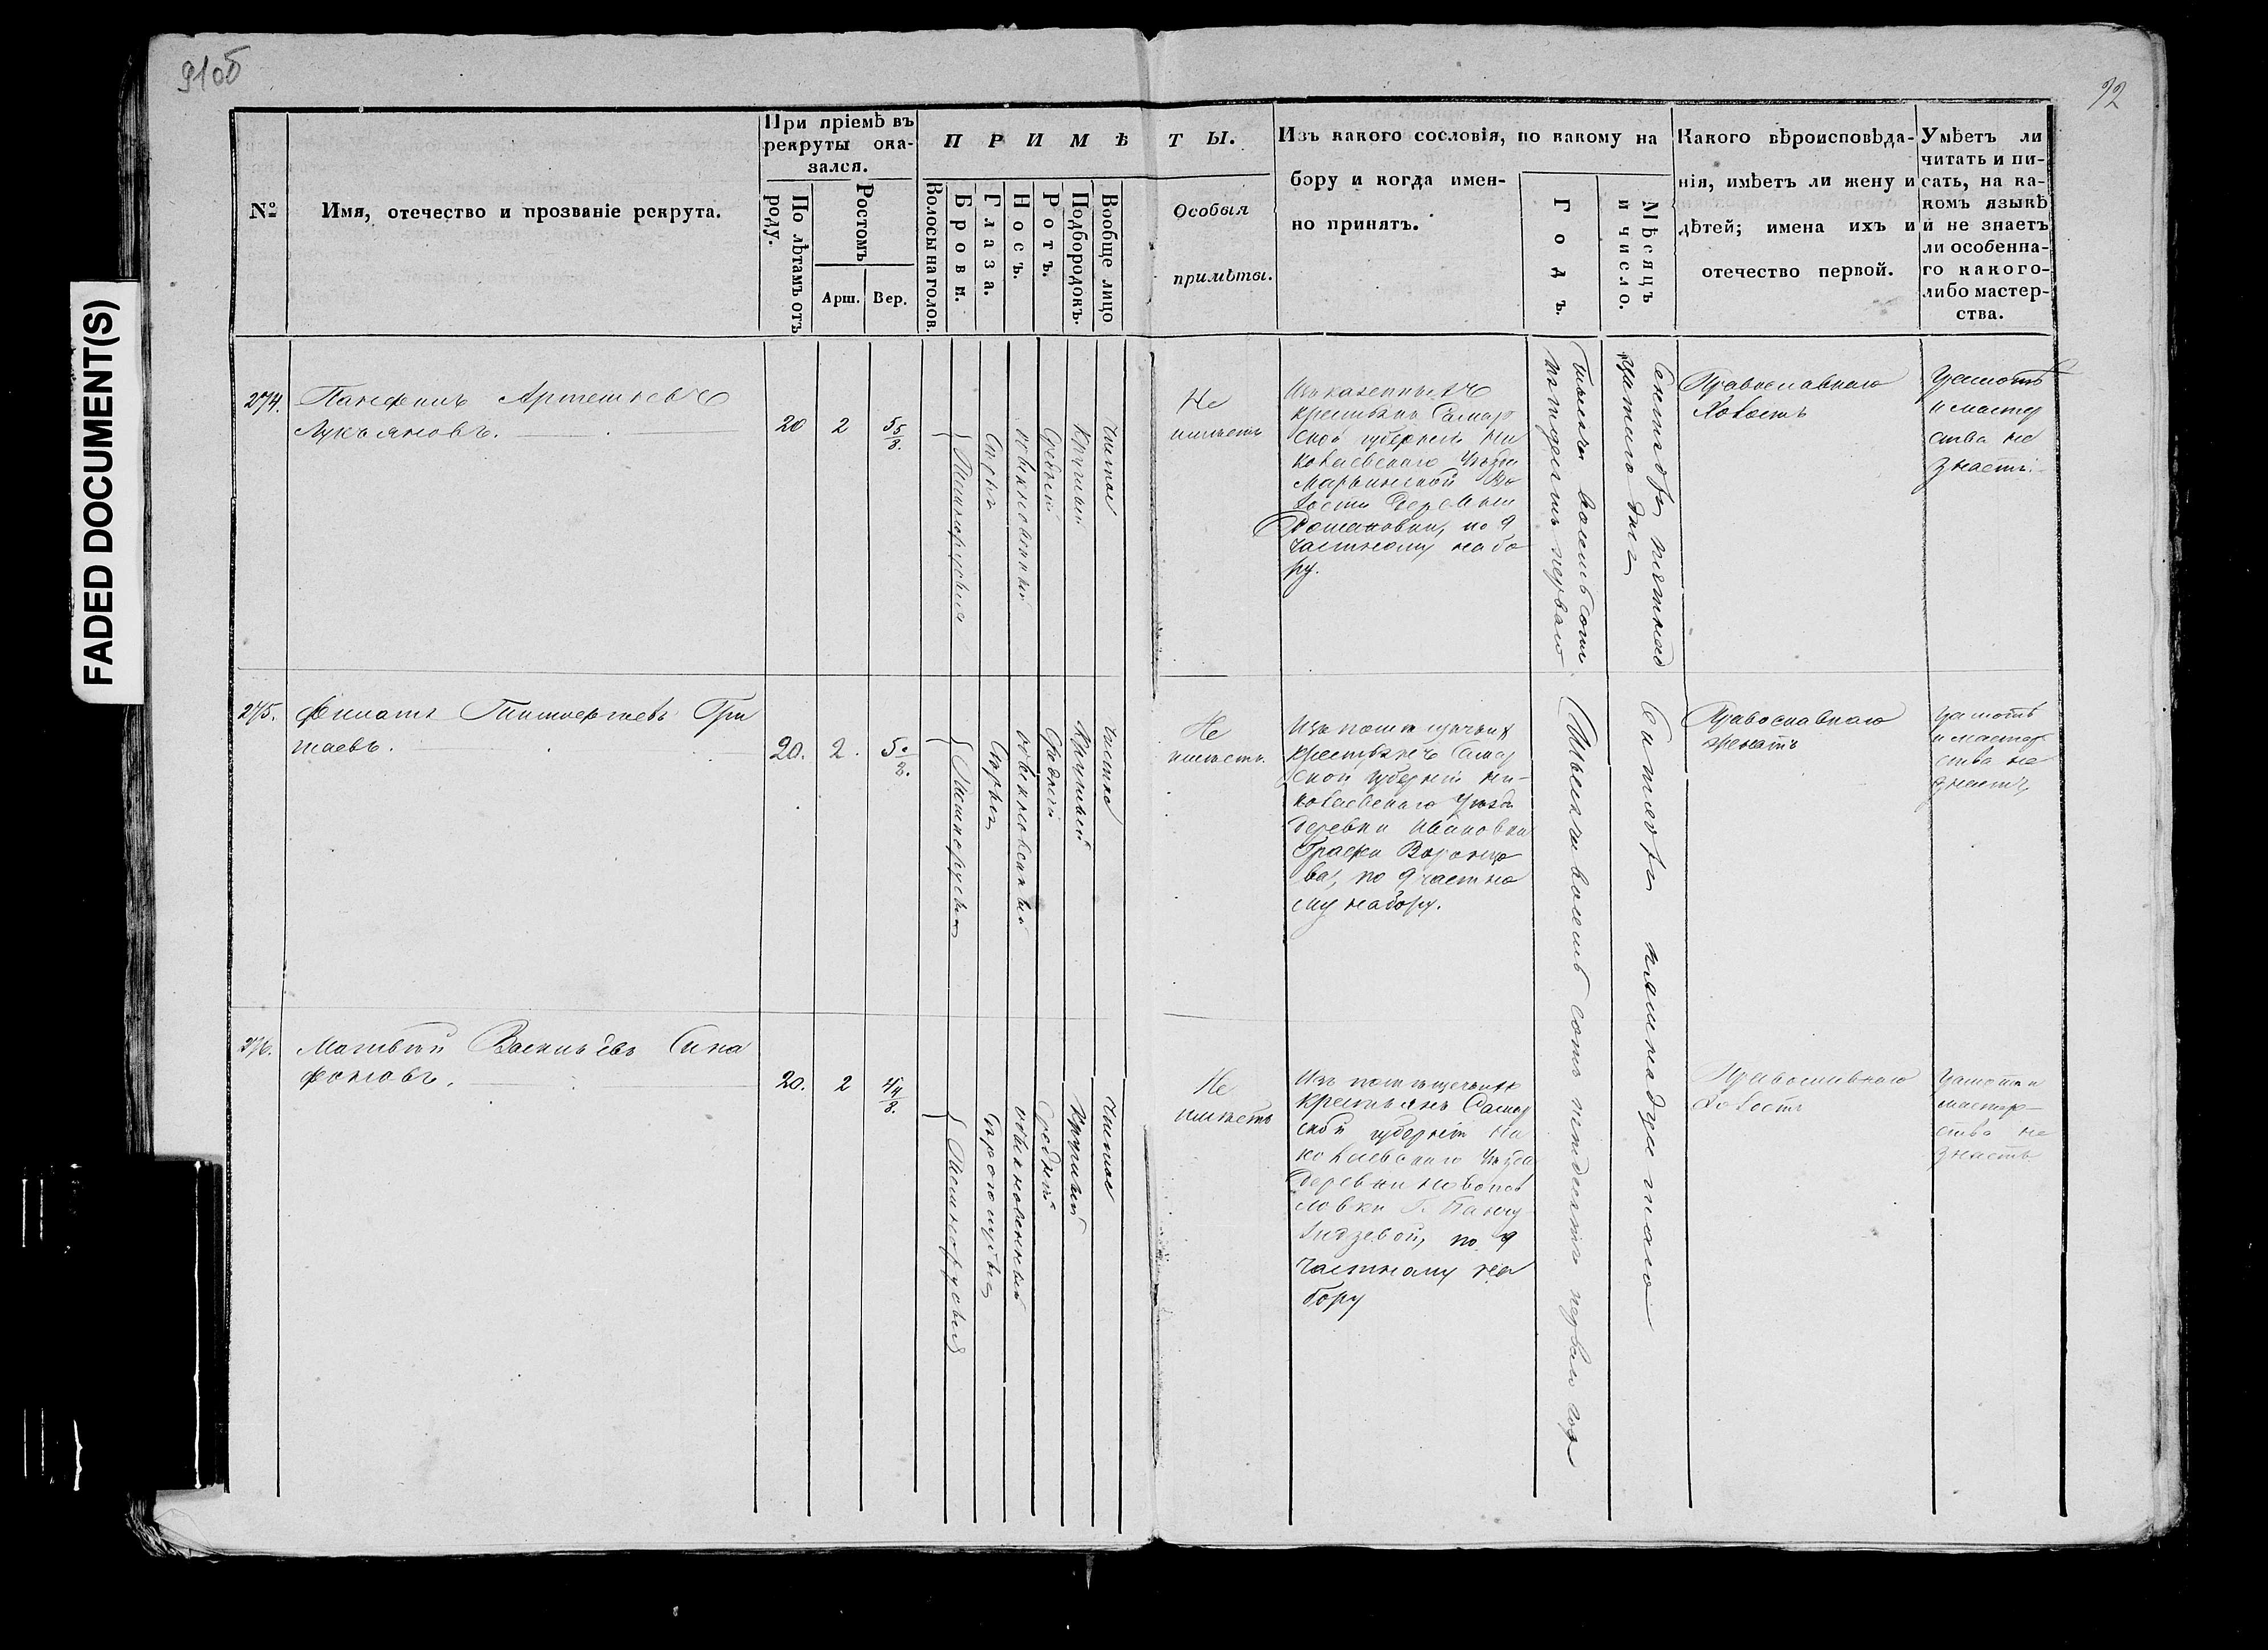 91об
92
FADED DOCUMENT(S)
№
Имя, отечество и прозваніе рекрута.
При пріемѣ въ
рекруты ока-
зался.
По лѣтамъ отъ
роду.
Ростомъ
Арш.
Вер.
ПРИМѢТЫ.
Волосы на голов.
Брови.
Глаза.
Носъ.
Ротъ.
Подбородокъ.
Вообще лицо
Особыя
примѣты.
Изъ какого сословія, по какому на
бору и когда имен-
но принятъ.
Годъ.
Мѣсяцъ
и число.
Какого вѣроисповѣда-
нія, имѣетъ ли жену и
дѣтей; имена ихъ и
отечество первой.
Умѣетъ ли
читать и пи-
сать, на ка-
комъ языкѣ
и не знаетъ
ли особенна-
го какого-
либо мастер-
ства.
274.
Панфилъ Артемьевъ
Лукьяновъ.
20
2
5 5/8.
Темнорусыя
Сѣрыя
обыкновенный
Средній
Круглый
Чистое
Не
имѣетъ
Изъ казенныхъ
крестьянъ Самар
ской губерніи Ни
колаевскаго Уѣзда
Марьинской Во
лости Деревни
Романовки, по 9
частному набо
ру.
Тысяча восемь сотъ
пятьдесятъ перваго
Сентября пятнад
цатаго дня
Православнаго
Холостъ
Грамотѣ
и мастер
ства не
знаетъ.
275.
Филатъ Тимофеевъ Гри
шаевъ.
20.
2.
Темнорусыя
Сѣрыя
обыкновенный
Средній
Круглый
Чистое
Не
имѣетъ.
Изъ помѣщичьихъ
крестьянъ Самар
ской губерніи Ни-
колаевскаго Уѣзда
деревни Ивановки
Графа Воронцо
ва, по 9 частно
му набору.
Тысяча восемь сотъ пятьдесятъ перваго года
Сентября пятнадцатаго
Православнаго
женатъ
Грамотѣ
и мастер
ства не
знаетъ
276.
Матвѣй Васильевъ
20.
2
4 4/8.
Темнорусыя
обыкновенный
Средній
Круглый
Чистое
Не
имѣетъ
Изъ помѣщичьихъ
крестьянъ Самар
ской губерніи Ни
колаевскаго Уѣзда
Деревни
по 9
частному на
бору
Православнаго
Холостъ
Грамотѣ и
мастер-
ства не
знаетъ